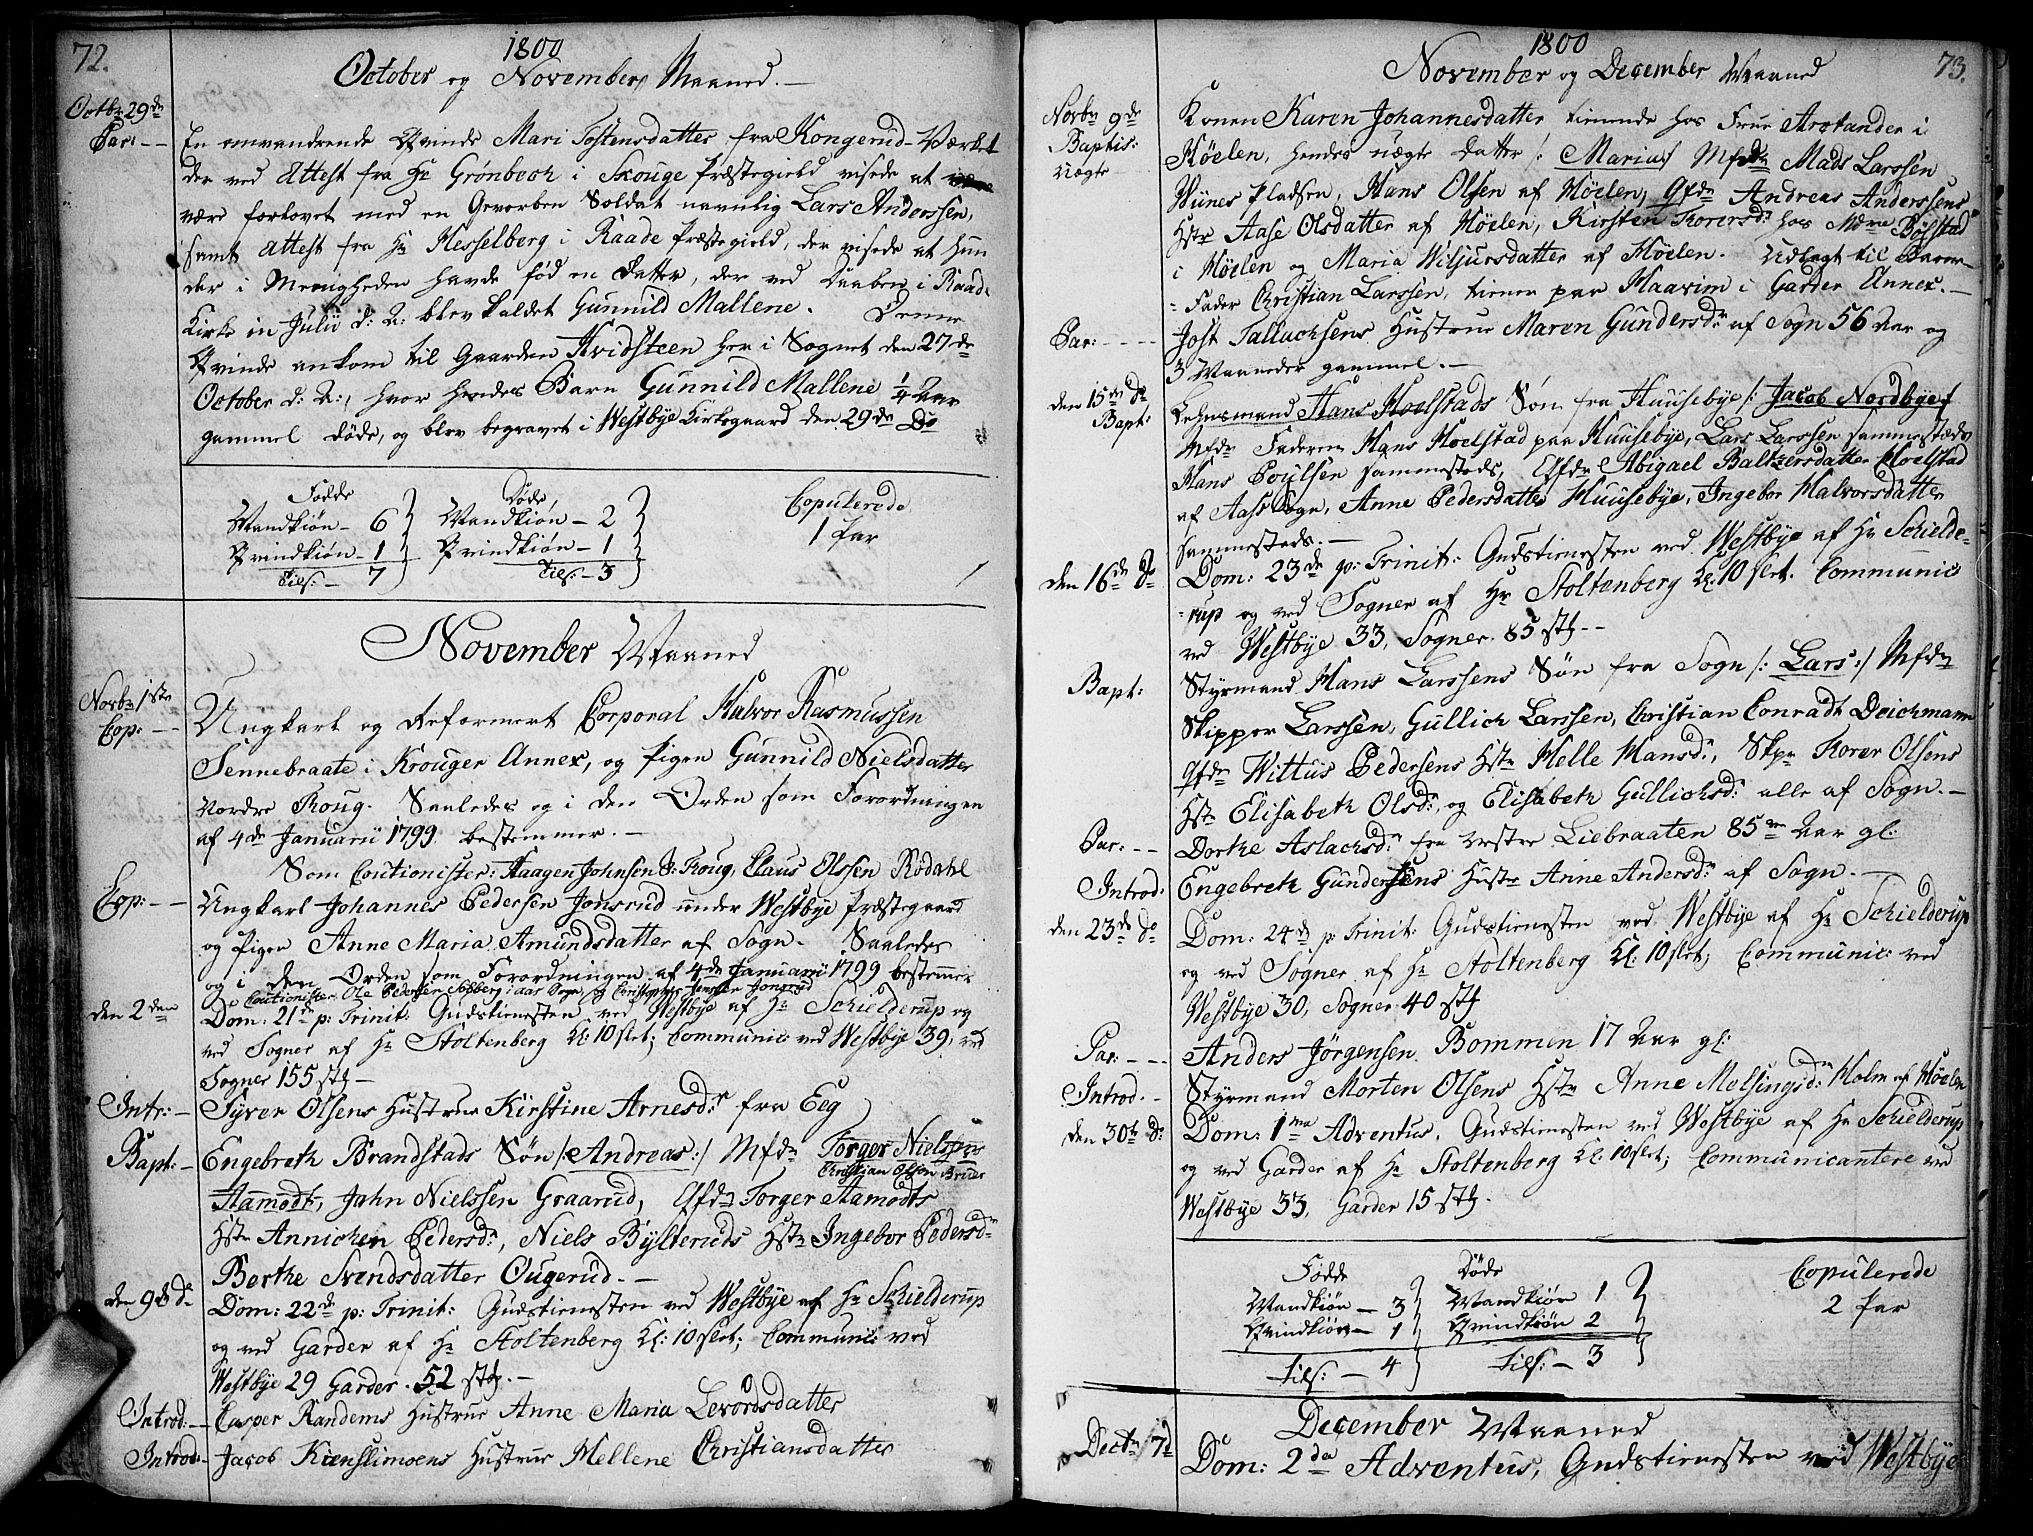 72.
1800
October og November Maaned. —
Octbr 29de
Par: — —
En omvandrende Qvinde Mari Tostensdatter fra Kongerud-Værket
der ved Attest fra Hr Grønbech i Skouge Præstegield visede at
være forlovet med en Gevorben Soldat navnlig Lars Anderssen,
samt Attest fra Hr Hesselberg i Raade Præstegield, der visede at hun
der i Menigheden havde fød en Datter, der ved Daaben i Raade
Kirke in Julii d: A: blev kaldet Gunnild Mallene. Denne
Qvinde ankom til Gaarden Hvidsteen her i Sognet den 27de
October d: A:, hvor hendes Barn Gunnild Mallene 1/4 Aar
gammel døde, og blev begravet i Westbye Kirkegaard den 29de Do
Fødde Døde Copulerede
Mandkiøn — 6 Mandkiøn — 2 1 Par
Qvindkiøn — 1 Qvindkiøn — 1
Tils: — 7 Tils: — 3
November Maaned
Novbr 1ste
Cop: —
Ungkarl og Reformert Corporal Halvor Rasmussen
Sennebraate i Krouger Annex, og Pigen Gunnild Nielsdatter
Nordre Roug. Saaledes og i den Orden som Forordningen
af 4de Januarii 1799 bestemmer. —
Som Cautionister: Haagen Johnsen S: Roug, Claus Olssen Rødahl
Cop: — —
Ungkarl Johannes Pedersen Jonsrud under Westbye Præstegaard
og Pigen Anne Maria Amundsdatter af Sogn. Saaledes
og i den Orden som Forordningen af 4de Januarii 1799 bestemmer
Cautionister Ole Pedersen Solberg i Aas Sogn og Christopher Jonsrud
den 2den
Dom: 21de p: Trinit: Gudstienesten ved Westbye af Hr Schielderup og
ved Sogner af Hr Stoltenberg Kl: 10 slet; Communic: ved Westbye 39, ved
Sogner 155 stk —
Intr: —
Syver Olsens Hustrue Kirstine Arnesdr fra Eeg
Bapt: —
Engebreth Brandstads Søn /: Andreas :/ Mfdr Torger Nielsens
Christian Olsen
Aamodt, John Nielssen Graarud, Qfdr Torger Aamodts
Hstr Annichen Pedersdr, Niels Bylteruds Hstr Ingebor Pedersdr
Berthe Svendsdatter Ougerud. —
den 9de do
Dom: 22de p: Trinit: Gudstienesten ved Westbye af Hr Schielderup
og ved Garder af Hr Stoltenberg Kl: 10 slet; Communic: ved
Westbye 29 Garder. 52 stk. —
Introd: —
Casper Randems Hustrue Anne Maria Levordsdatter
Introd: —
Jacob Kienslimoens Hustrue Mellene Christiansdatter
1800
November og December Maaned
73.
Novbr 9de
Baptis:
uægte
Konen Karen Johannesdatter tienende hos Frue Arotander i
Høelen, hendes uægte Datter /: Maria :/ Mfdr Mads Larssen
Wiines Pladsen, Hans Olsen af Høelen, Qfdr Andreas Anderssens
Hstr Aase Olsdatter af Høelen, Kirsten Torersdr hos Mdme Bølstad
i Høelen og Maria Wiljursdatter af Høelen. Udlagt til Barne-
-Fader Christian Larssen, tiener paa Haavim i Garder Annex. —
Par: — — —
Jost Tallachsens Hustrue Maren Gundersdr af Sogn 56 Aar og
3 Maaneder gammel. —
den 15de do
Bapt:
Lehnsmand Hans Hoelstads Søn fra Huusebye /: Jacob Nordbye :/
Mfdr Faderen Hans Hoelstad paa Huusebye, Lars Larssen sammestæds
Hans Poulsen sammesteds, Qfdr Abigael Baltzersdatter Hoelstad
af Aass Sogn, Anne Pedersdatter Huusebye, Ingebor Halvorsdatter
sammesteds. —
den 16de do
Dom: 23de p: Trinit: Gudstienesten ved Westbye af Hr Schielde-
-rup og ved Sogner af Hr Stoltenberg Kl: 10 slet. Communic:
ved Westbye 33, Sogner. 85 stk — —
Bapt:
Styrmand Hans Larssens Søn fra Sogn /: Lars :/ Mfdr
Skipper Larssen, Gullich Larssen, Christian Conradt Deichmann
Qfdr Wittus Pedersens Hstr Helle Hansdr, Skpr Torer Olsens
Hstr Elisabeth Olsdr, og Elisabeth Gullichsdr alle af Sogn. —
Par: — —
Dorthe Aslachsdr fra vestre Liebraaten 85 Aar gl:
Introd:
Engebreth Gundersens Hustr Anne Andersdr af Sogn. —
den 23de do
Dom: 24de p Trinit: Gudstienesten ved Westbye af Hr Schielderup
og ved Sogner af Hr Stoltenberg Kl: 10 slet; Communic: ved
Westbye 30, Sogner. 40 stk
Par: — — —
Anders Jörgensen Bommen 17 Aar gl:
Introd. —
Styrmand Morten Olsens Hstr Anne Helsingsdr Holm af Høelen
den 30te do
Dom: 1ma Adventus. Gudstienesten ved Westbye af Hr Schielderup
og ved Garder af Hr Stoltenberg Kl: 10 slet; Communicantere ved
Westbye 33, Garder 15 stk.
Fødde Døde Copulerede
Mandkiøn — 3 Mandkiøn 1 2 Par
Qvindkiøn — 1 Qvindkiøn 2
Tils: — 4 Tils: — 3
December Maaned
Decbr 7de
Dom: 2da Adventus, Gudstienesten ved Westbye